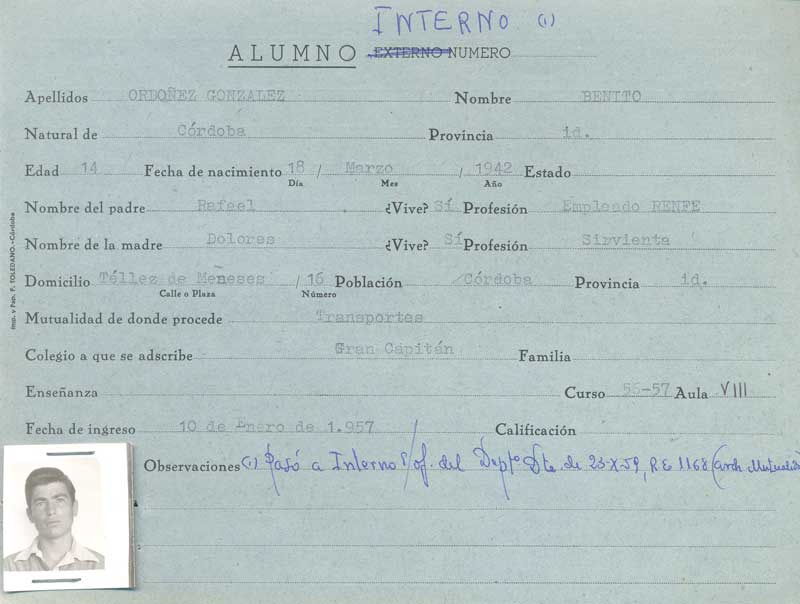 INTERNO (1)
ALUMNO EXTERNO NUMERO
Apellidos ORDOÑEZ GONZALEZ Nombre BENITO
Natural de Córdoba Provincia id.
Edad 14 Fecha de nacimiento 18 / Marzo / 1942 Estado
Día Mes Año
Nombre del padre Rafael ¿Vive? Sí Profesión Empleado RENFE
Nombre de la madre Dolores ¿Vive? Sí Profesión Sirvienta
Domicilio Téllez de Meneses / 16 Población Córdoba Provincia id.
Calle o Plaza Número
Mutualidad de donde procede Transportes
Colegio a que se adscribe Gran Capitán Familia
Enseñanza Curso 56-57 Aula VIII
Fecha de ingreso 10 de Enero de 1.957 Calificación
Observaciones (1) Pasó a Interno s/of. del Deptº Dte. de 23-X-59, R.E 1168 (arch Mutualis
Imp. y Pap. F. TOLEDANO.-Córdoba